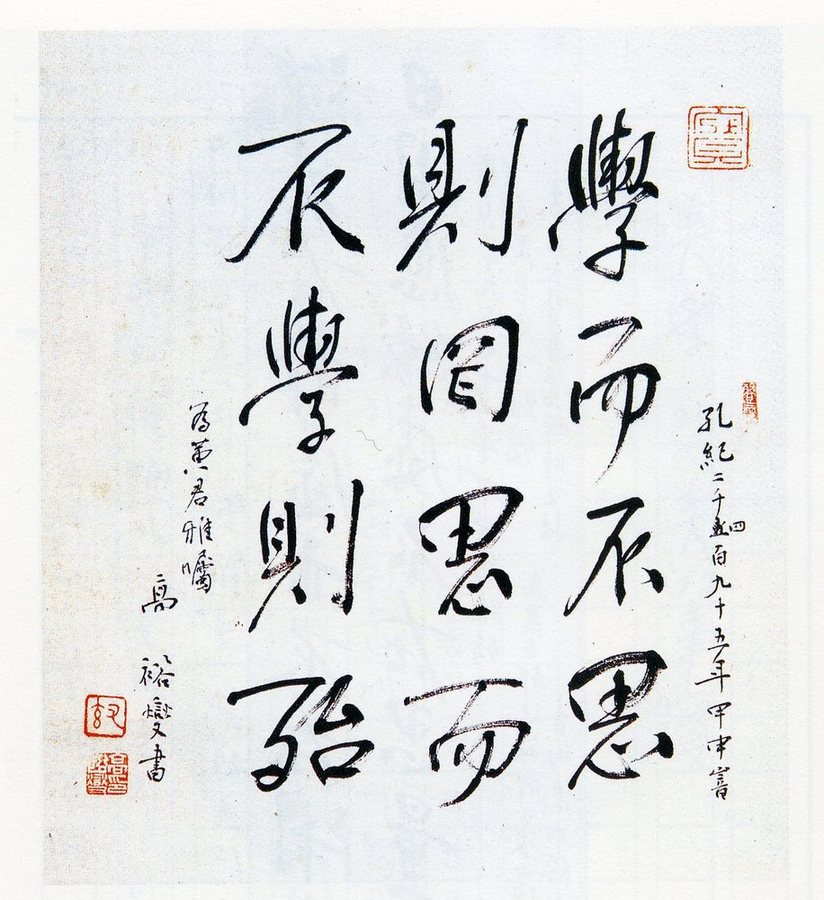 孔紀二千四百九十五年甲申
學而不思
則罔思而
不學則殆
為黃君雅囑
高裕燮書